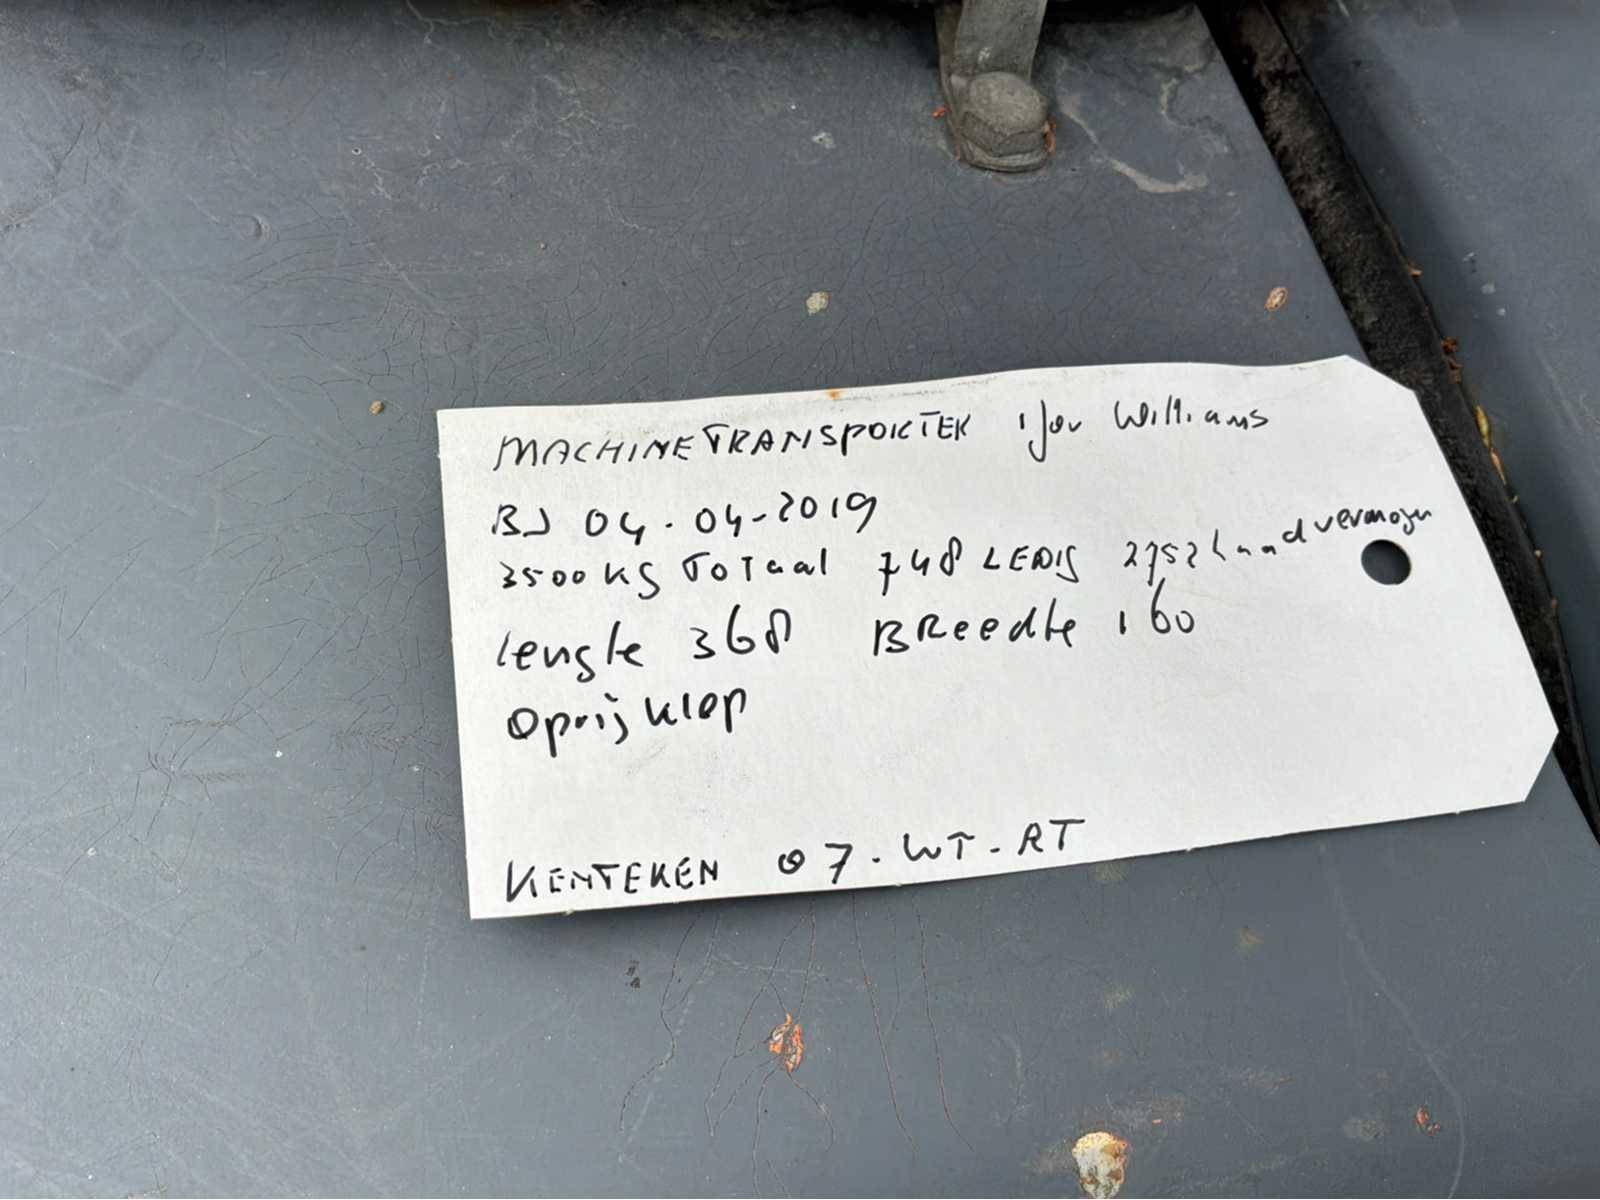 MACHINETRANSPORTER ifor Williams
BJ 04-04-2019
3500 KG Totaal 748 LEDIG 2752 Laadvermogen
lengte 368 BReedte 160
Oprijklep
KENTEKEN 07-WT-RT